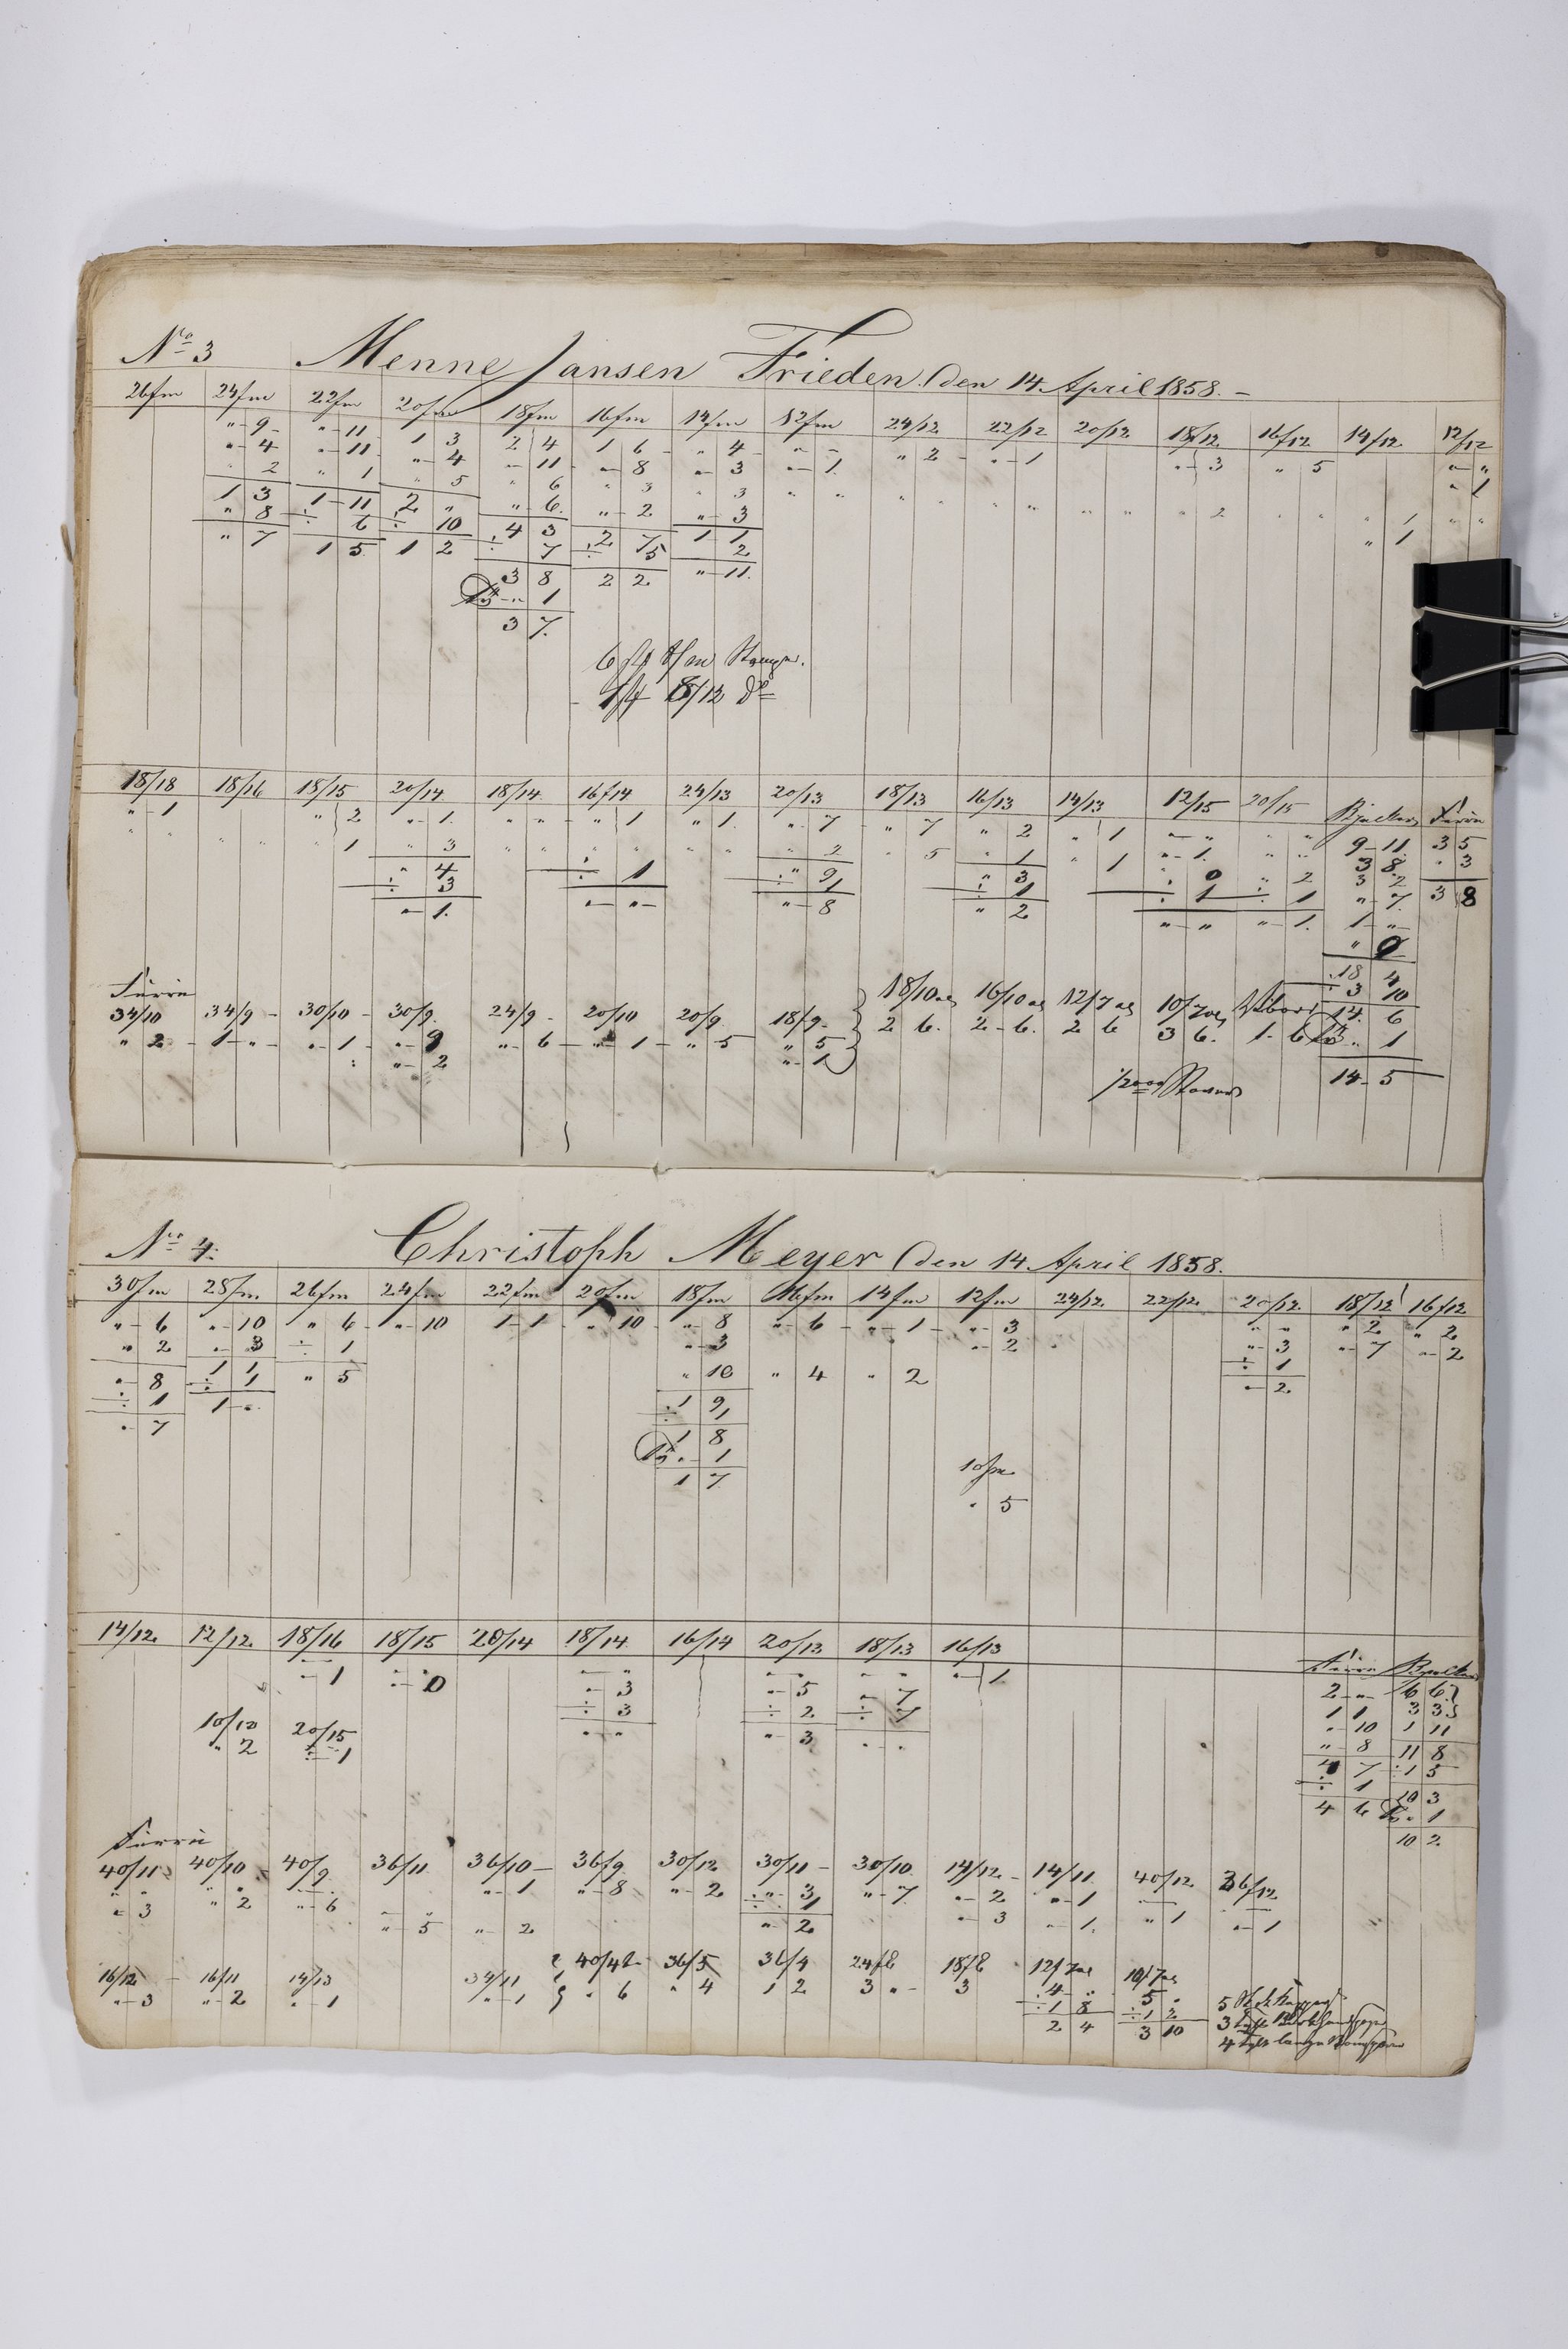 No 3 Menne Jansen Frieden. den 14. April 1858. –
26fm 24fm 22fm 20fm 18fm 16fm 14fm 12fm 24/12 22/12 20/12 18/12 16/12 14/12 12/12
„ 9 „ 11 1 3 2 4 1 6 „ 4 „ – „ 2 „ 1 „ 3 „ 5 „ „
„ 4 „ 11 „ 4 „ 11 „ 8 „ 3 „ 1. „ 1
„ 2 „ 1 „ 5 „ 6 „ 3 „ 3 „ „ „ „ „ „ „ 2 „ „ „ 1 „ „
1 3 1 11 2 „ „ 6. „ 2 „ 3 „ 1
„ 8 ÷ 6 ÷ 10 4 3 2 7 1 1
„ 7 1 5 1 2 ÷ 7 ÷ 5 2
3 8 2 2 „ 11.
„ 1
3 7.
1/4 8/12 do
18/18 18/16 18/15 20/14 18/14 16/14 24/13 20/13 18/13 16/13 14/13 12/15 20/15
„ 1 „ 2 „ 1. „ „ „ 1 „ 1. „ 7 „ 7 „ 2 „ 1 „ „ „ „ 9 11. 3 5
„ „ „ „ „ 1 „ 3 „ „ „ „ „ „ „ 2 „ 5 „ 1 „ 1 „ 1. „ „ 3 8. „ 3
„ 4 ÷ 1 „ 9 „ 3 „ 0 „ 2 3 2 3 8
÷ 3 „ „ ÷ 1 ÷ 1 ÷ 1 ÷ 1 „ 7.
„ 1. „ 8 „ 2 „ „ „ 1. 1 „
„ 0
18 4
÷ 3 10
34/10 34/9 30/10 30/9. 24/9 20/10 20/9. 18/9 18/10 16/10 12/7 10/7 14. 6
„ 2 1 „ „ 1 „ 9 „ 6 „ 1 „ 5 „ 5 2 6. 2 6. 2 6 3 6. 1. 6 „ 1
„ 2 „ 1
14 5
No 4. Christoph Meyer den 14 April 1858.
30fm 28fm 26fm 24fm 22fm 20fm 18fm 16fm 14fm 12fm 24/12. 22/12. 20/12. 18/12 16/12
„ 6 „ 10 „ 6 „ 10 1 1 „ 10 „ 8 „ 6 „ 1 „ 3 „ „ „ 2 „ 2
„ 2 „ 3 ÷ 1 „ 3 „ 2 „ 3 „ 7 „ 2
„ 8 1 1 „ 5 „ 10 „ 4 „ 2 ÷ 1
÷ 1 ÷ 1 1 9 „ 2.
„ 7 1 „ ÷ 1
1 8
„ 1 10fm
1 7 „ 5
14/12. 12/12. 18/16 18/15 20/14 18/14 16/14 20/13 18/13 16/13
„ 1 „ 0 „ „ „ „ „ „ „ 1. 2 „ 6 6
„ 3 „ 5 „ 7 1 1 3 3
10/12 20/15 ÷ 3 ÷ 2 ÷ 7 „ 10 1 11
„ 2 ÷ 1 „ „ „ 3 „ „ „ 8 11 8
4 7 ÷ 1 5
÷ 1 10 3
4 6 „ 1
10 2
40/11 40/10 40/9 36/11 36/10 36/9 30/12 30/11 30/10 14/12. 14/11 40/12 36/12
„ „ „ 2 „ 6 „ 1 „ 8 „ 2 „ 3 „ 7 „ 2 „ 1
„ 3 „ 5 „ 2 „ 2 „ 3 „ 1. „ 1 „ 1
16/12 16/11 14/13 34/11 36/5 36/4 24/8 18/8
„ 3 „ 2 „ 1 „ 1 „ 6 „ 4 1 2 3 „ 3 4 „ 5 „
÷ 1 8 ÷ 1 2
2 4 3 10